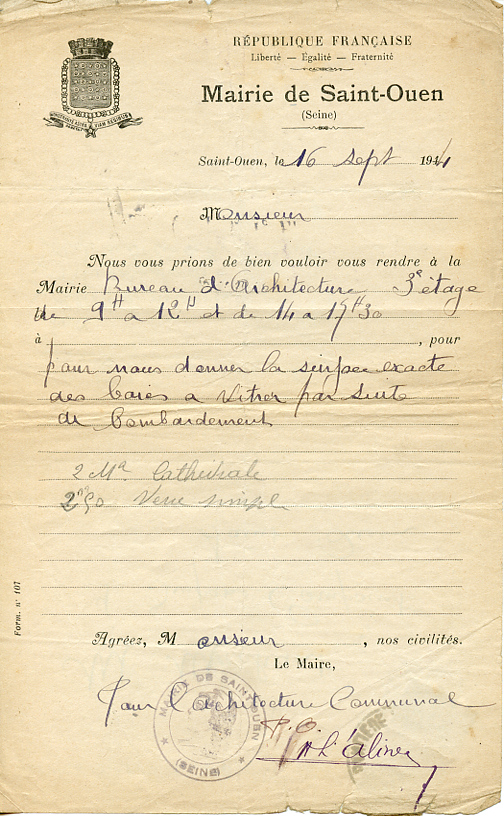 RÉPUBLIQUE FRANÇAISE
Liberté — Égalité — Fraternité
Mairie de Saint-Ouen
(Seine)
Saint-Ouen, le 16 sept 1944
Monsieur
Nous vous prions de bien vouloir vous rendre à la
Mairie Bureau d'Architecture 3e étage
de 9H a 12H et de 14 a 17H30
à , pour
pour nous donner la surface exacte
des baies a vitrer par suite
de Bombardement
2 Ma Cathédrale
2 m 50 Verre simple
Form. n° 107
Agréez, Monsieur , nos civilités.
Le Maire,
Pour l'architecture Communal
P.O.
MAIRIE DE SAINT-OUEN
(SEINE)